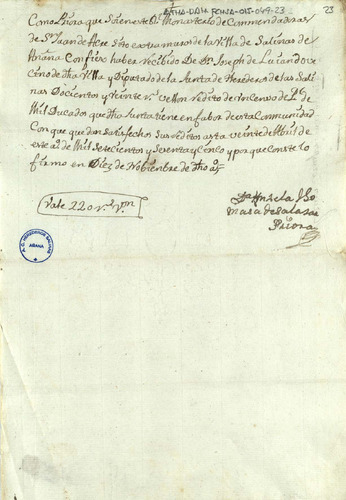 23
Como Priora que Soi en este Rl. Monasterio de Comendadoras
de Sn. Juan de Acre Sito extramuros de la Villa de Salinas de
Añana Confieso haber recibido De Dn. Joseph de Lucando ve
cino de dha Villa y Diputado de la Junta de Herederos de las Sali
nas Docientos y veinte rs. vellon redito de un censo de
Mil Ducados que dha Junta tiene en fabor de esta Comunidad
Con que quedan satisfechos sus reditos asta veinte de Abril de
este aº de Mil Setecientos y Setenta y Cinco y porque conste lo
firmo en Diez de Nobiembre de dho aº
Vale 220 rs. vn
Maria de Salazar
Priora
A.C. HEREDEROS SALINAS
AÑANA